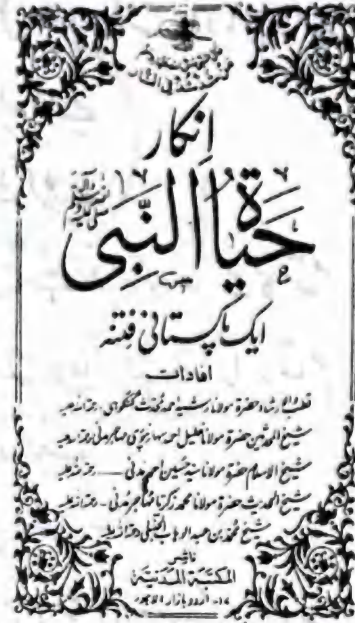 انکار
حیاۃ النبی ﷺ
ایک پاکستانی فتنہ
افادات
قطب الارشاد حضرۃ مولانا رشید احمد محدث گنگوہی رحمۃ اللہ علیہ
شیخ المحدثین حضرۃ مولانا خلیل احمد سہارنپوری مہاجر مدنی رحمۃ اللہ علیہ
شیخ الاسلام حضرۃ مولانا سید حسین احمد مدنی رحمۃ اللہ علیہ
شیخ الحدیث حضرۃ مولانا محمد زکریا مہاجر مدنی رحمۃ اللہ علیہ
شیخ محمد بن عبد الوہاب الحنبلی رحمۃ اللہ علیہ
ناشر
المکتبۃ المدنیۃ
۱۷۔ اردو بازار لاہور